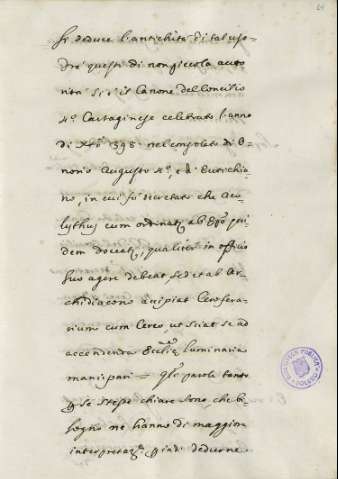 si deduce l'antichità di tal uso
drè questi di non piccola auto
rità si è il Canone del Concilio
4.º Cartaginese celebrato l'anno
di 398. nel consolato di O=
norio Augusto 4.º, ed Eutichia
no, in cui fù decretato che Aco
lythus cum ordinatʒ ab Epõ qui
dem doceatʒ, qualiter in officio
suo agere debeat, sed et ab Ar
chidiacono accipiat Ceroferа
rium cum Cereo, ut sciat se ad
accendenda Eccliæ luminaria
mancipari = qste parole tanto
p se stesse chiare sono, che bi
sogno nè hanno di maggior
interpretazᵉ quindi dedurne